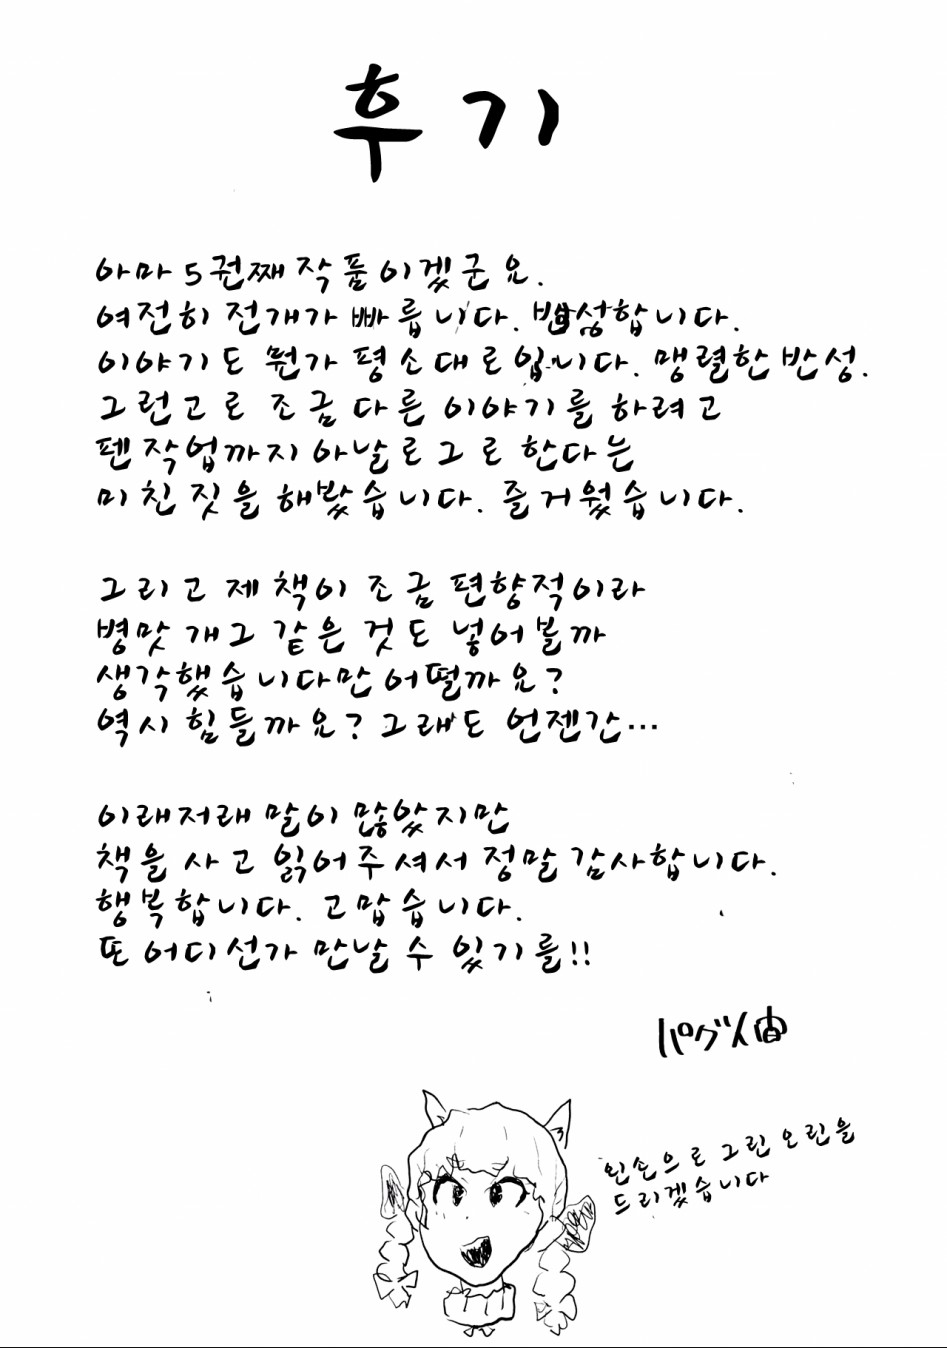 후기
아마 5권째 작품이겠군요.
여전히 전개가 빠릅니다. 반성합니다.
이야기도 뭔가 평소대로입니다. 맹렬한 반성.
그런고로 조금 다른 이야기를 하려고
펜 작업까지 아날로그로 한다는
미친 짓을 해봤습니다. 즐거웠습니다.
그리고 제 책이 조금 편향적이라
병맛 개그 같은 것도 넣어볼까
생각했습니다만 어떨까요?
역시 힘들까요? 그래도 언젠간…
이래저래 말이 많았지만
책을 사고 읽어주셔서 정말 감사합니다.
행복합니다. 고맙습니다.
또 어디선가 만날 수 있기를!!
왼손으로 그린 오린을
드리겠습니다